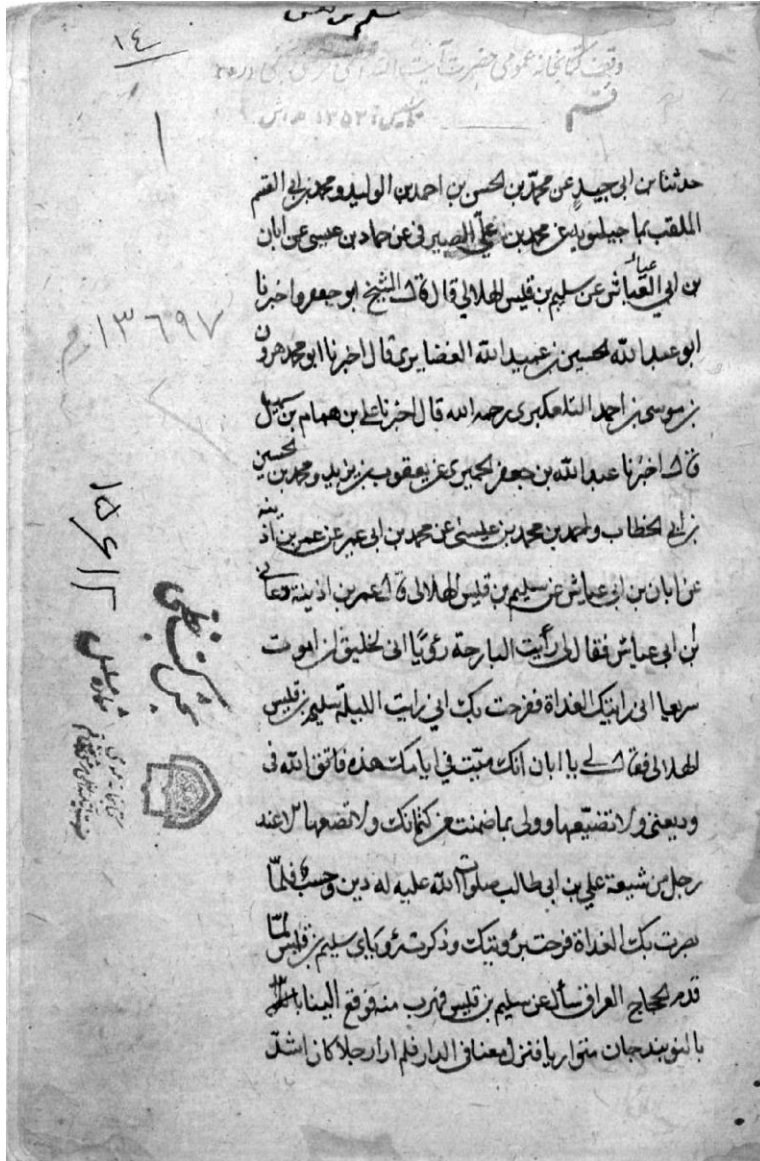 ١٤
وقف كتابخانه عمومى حضرت آيت الله
قم
١٣٥٣
١
حدثنا بن ابى جيدٍ عن محمّد بن الحسن بن احمد بن الوليد ومحمد بن ابى القسم
الملقب بماجيلويه عن محمد بن علي الصيرفى عن حماد بن عيسى عن ابان
بن ابي العيّاش عن سليم بن قيس الهلالي قال قال الشيخ ابو جعفر واخبرنا
ابو عبد الله الحسين بن عبيد الله الغضايرى قال اخبرنا ابو محمد هرون
بن موسى بن احمد التلعكبرى رحمه الله قال اخبرنا على بن همام بن سهيل
قال اخبرنا عبد الله بن جعفر الحميرى عن يعقوب بن يزيد ومحمد بن الحسين
بن ابي الخطاب واحمد بن محمد بن عيسى عن محمد بن ابى عمير عن عمر بن اذينه
عن ابان بن ابى عياش عن سليم بن قيس الهلالى قال عمر بن اذينة دعانى
بن ابى عياش فقال لى رأيت البارحة رؤيًا انى لخليق ان اموت
سريعا انى رايتك الغداة ففرحت بك انى رايت الليلة سليم بن قيس
الهلالى فقال لے يا ابان انك ميّت في ايامك هذه فاتق الله فى
وديعتى ولا تضيّعها وولى بما ضمنت من كتمانك ولا تضعها الا عند
رجل من شيعة علي بن ابى طالب صلوات الله عليه له دين وحسب فلمّا
بصرت بك الغداة فرحت برؤيتك وذكرت رؤياى سليم بن قيس لمّا
قدم الحجاج العراق سأل عن سليم بن قيس فهرب منه فوقع الينا
بالنوبندجان متواريا فنزل معنا فى الدار فلم ار رجلا كان اشدّ
١٣٦٩٧
شماره مسلسل